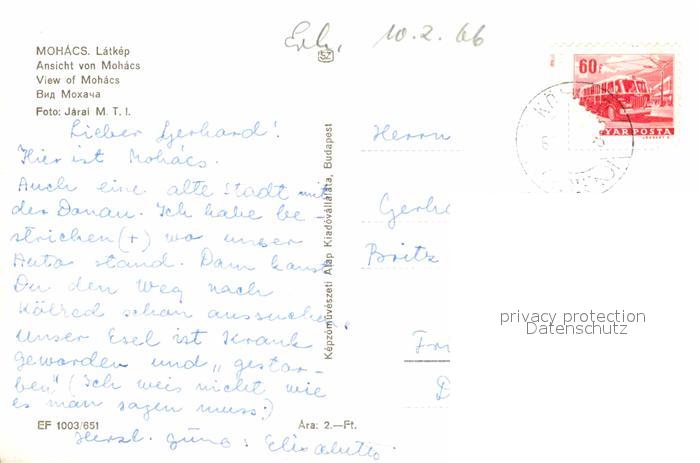 Erh. 10.2.66
MOHÁCS. Látkép
Ansicht von Mohács
View of Mohács
Вид Мохача
Foto: Járai M. T. I.
Lieber Gerhard!
Hier ist Mohács.
Auch eine alte Stadt mit
der Donau. Ich habe be-
strichen (+) wo unser
Auto stand. Dann kanst
Du den Weg nach
schon aussuchen.
Unser Esel ist Krank
geworden und „gestor-
ben" (Ich weis nicht wie
es man sagen muss.)
Herzl.
EF 1003/651
Ára: 2.—Ft.
Képzőművészeti Alap Kiadóvállalata, Budapest
60f
YAR POSTA
Herrn
Gerh
Britz
Fri
D
privacy protection
Datenschutz